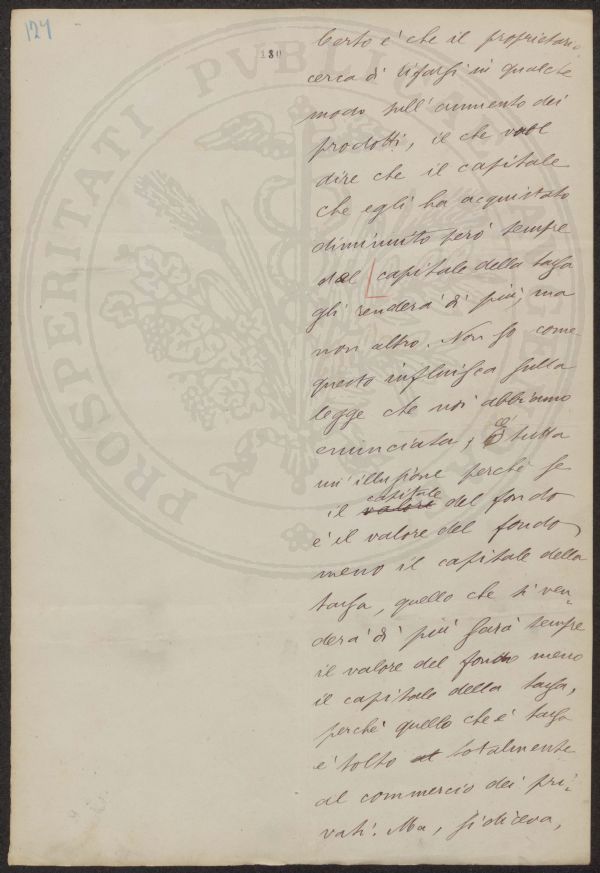 124
180
Certo è che il proprietario
cerca di rifarsi in qualche
modo sull'aumento dei
prodotti, il che vuol
dire che il capitale
che egli ha acquistato
diminuito però sempre
dal capitale della tassa
gli renderà di più, ma
non altro. Non so come
questo influisca sulla
legge che noi abbiamo
enunciata, è tutta
un'illusione perchè se
il valore capitale del fondo
è il valore del fondo
meno il capitale della
tassa, quello che si ven-
derà di più sarà sempre
il valore del fondo meno
il capitale della tassa,
perchè quello che è tassa
è tolto al totalmente
al commercio dei pri-
vati. Ma, si diceva,
PROSPERITATI PUBLICAE